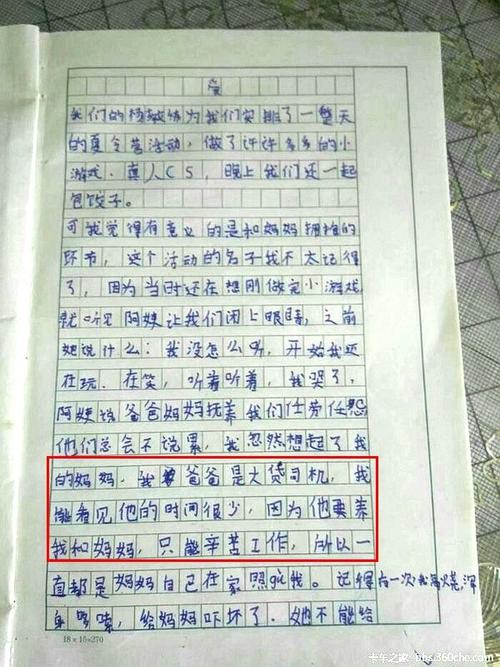 爱
我们的杨教练为我们安排了一整天
的夏令营活动，做了许许多多的小
游戏．真人CS，晚上我们还一起
包饺子。
可我觉得有意义的是和妈妈拥抱的
环节，这个活动的名子我不太记得
了，因为当时还在想刚做完小游戏
就听见阿姨让我们闭上眼睛，之前
她说什么：我没怎么听，开始我还
在玩．在笑，听着听着，我哭了，
阿姨说爸爸妈妈抚养我们任劳任怨
他们总会不说累，我忽然想起了我
的妈妈．我爸爸是大货司机，我
能看见他的时间很少，因为他要养
我和妈妈，只能辛苦工作，所以一
直都是妈妈自己在家照顾我。记得有一次，我高火烧，浑
身哆嗦，给妈妈吓坏了．她不能给
18×15=270
卡车之家 bbs.360che.com